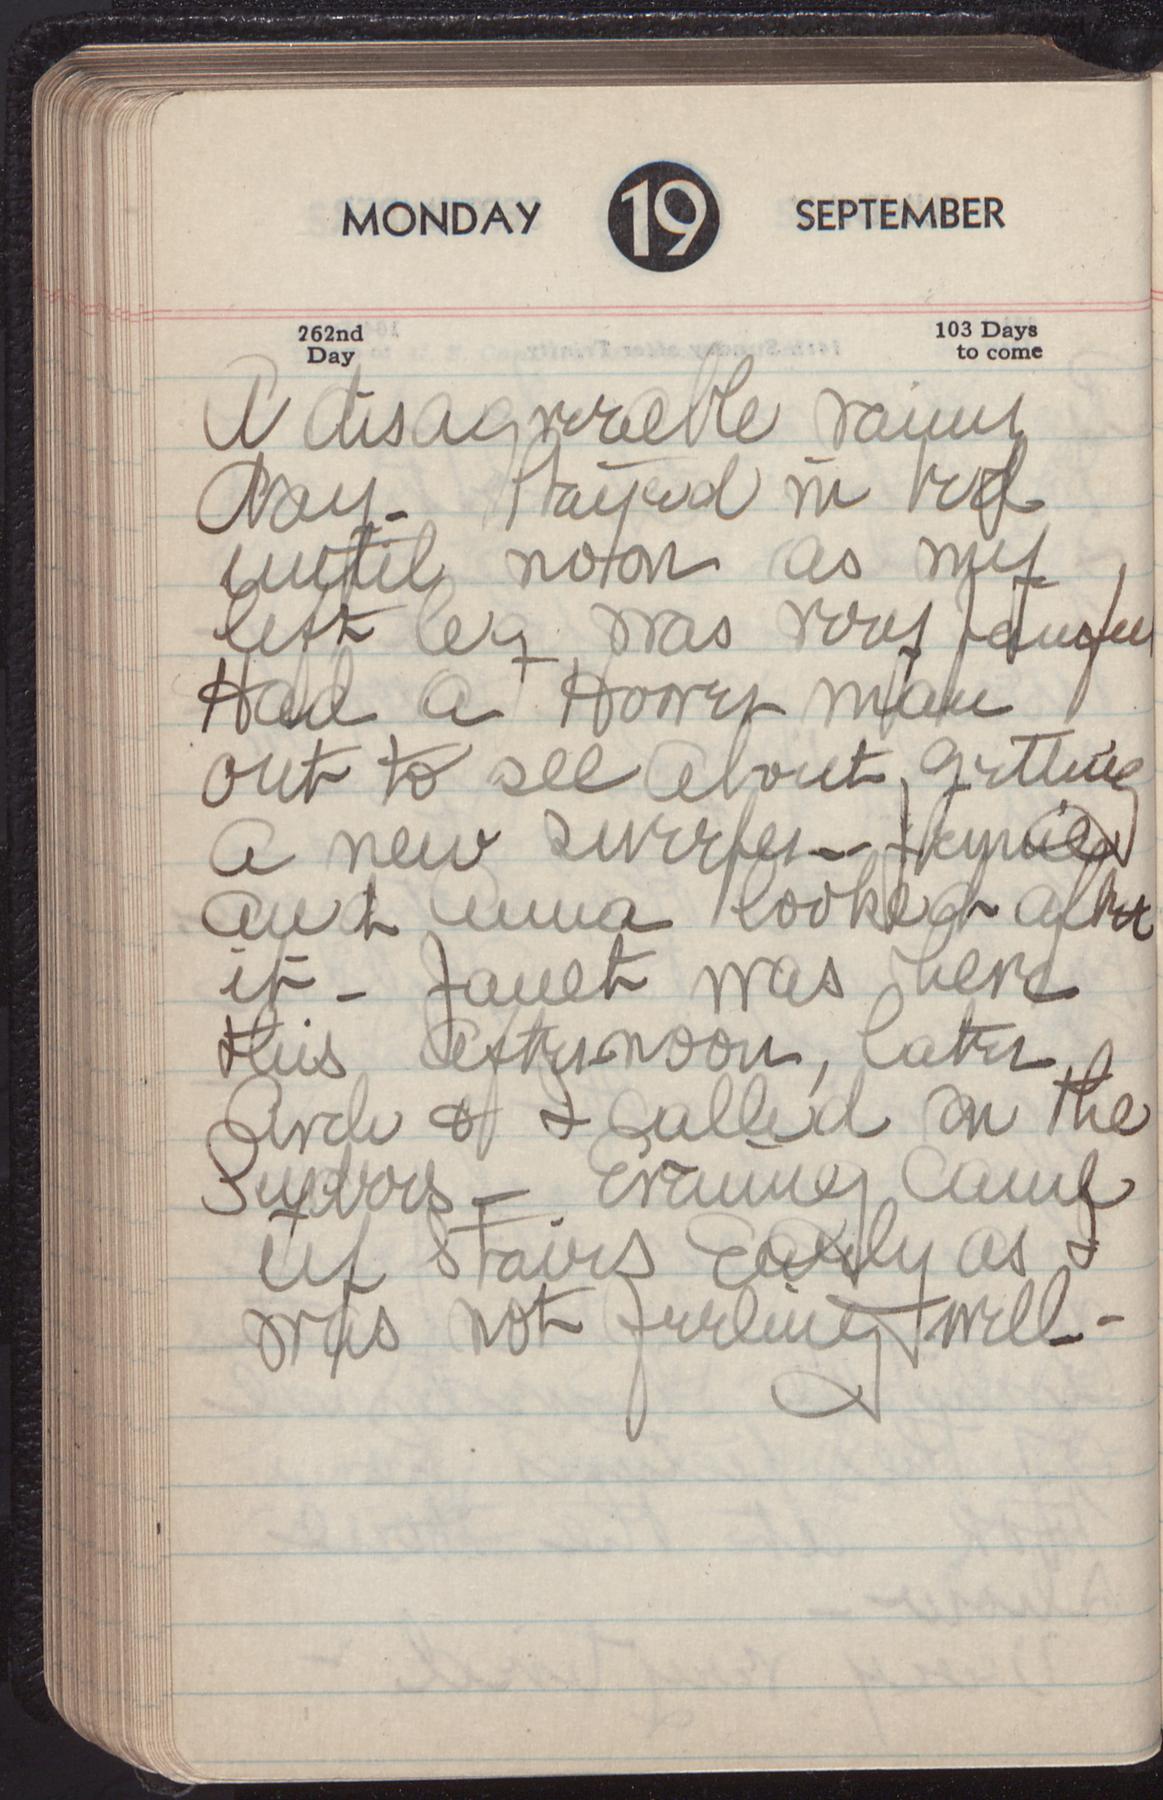 MONDAY 19 SEPTEMBER
262nd Day
103 Days to come
A disagreeable rainy
Day - Stayed in bed
until noon as my
left leg was very painful
Had a Hoover man
out to see about getting
a new sweeper --
and Anna looked after
it - Janet was here
this afternoon, later
Arch & I called on the
- Evening came
up stairs early as I
was not feeling well -